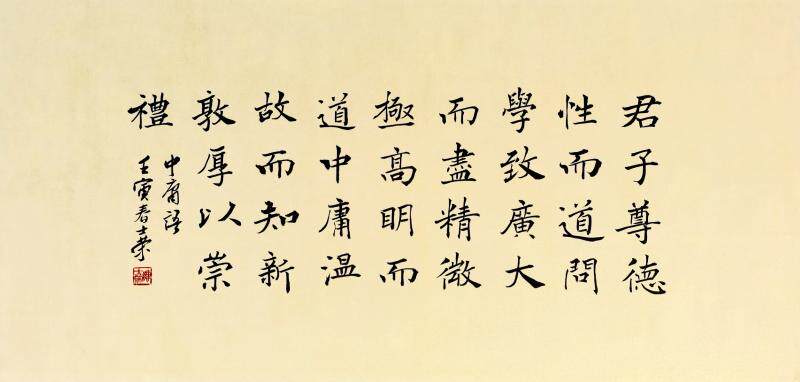 君子尊德
性而道問
學致廣大
而盡精微
極高明而
道中庸溫
故而知新
敦厚以崇
禮
中庸語
壬寅春士荣